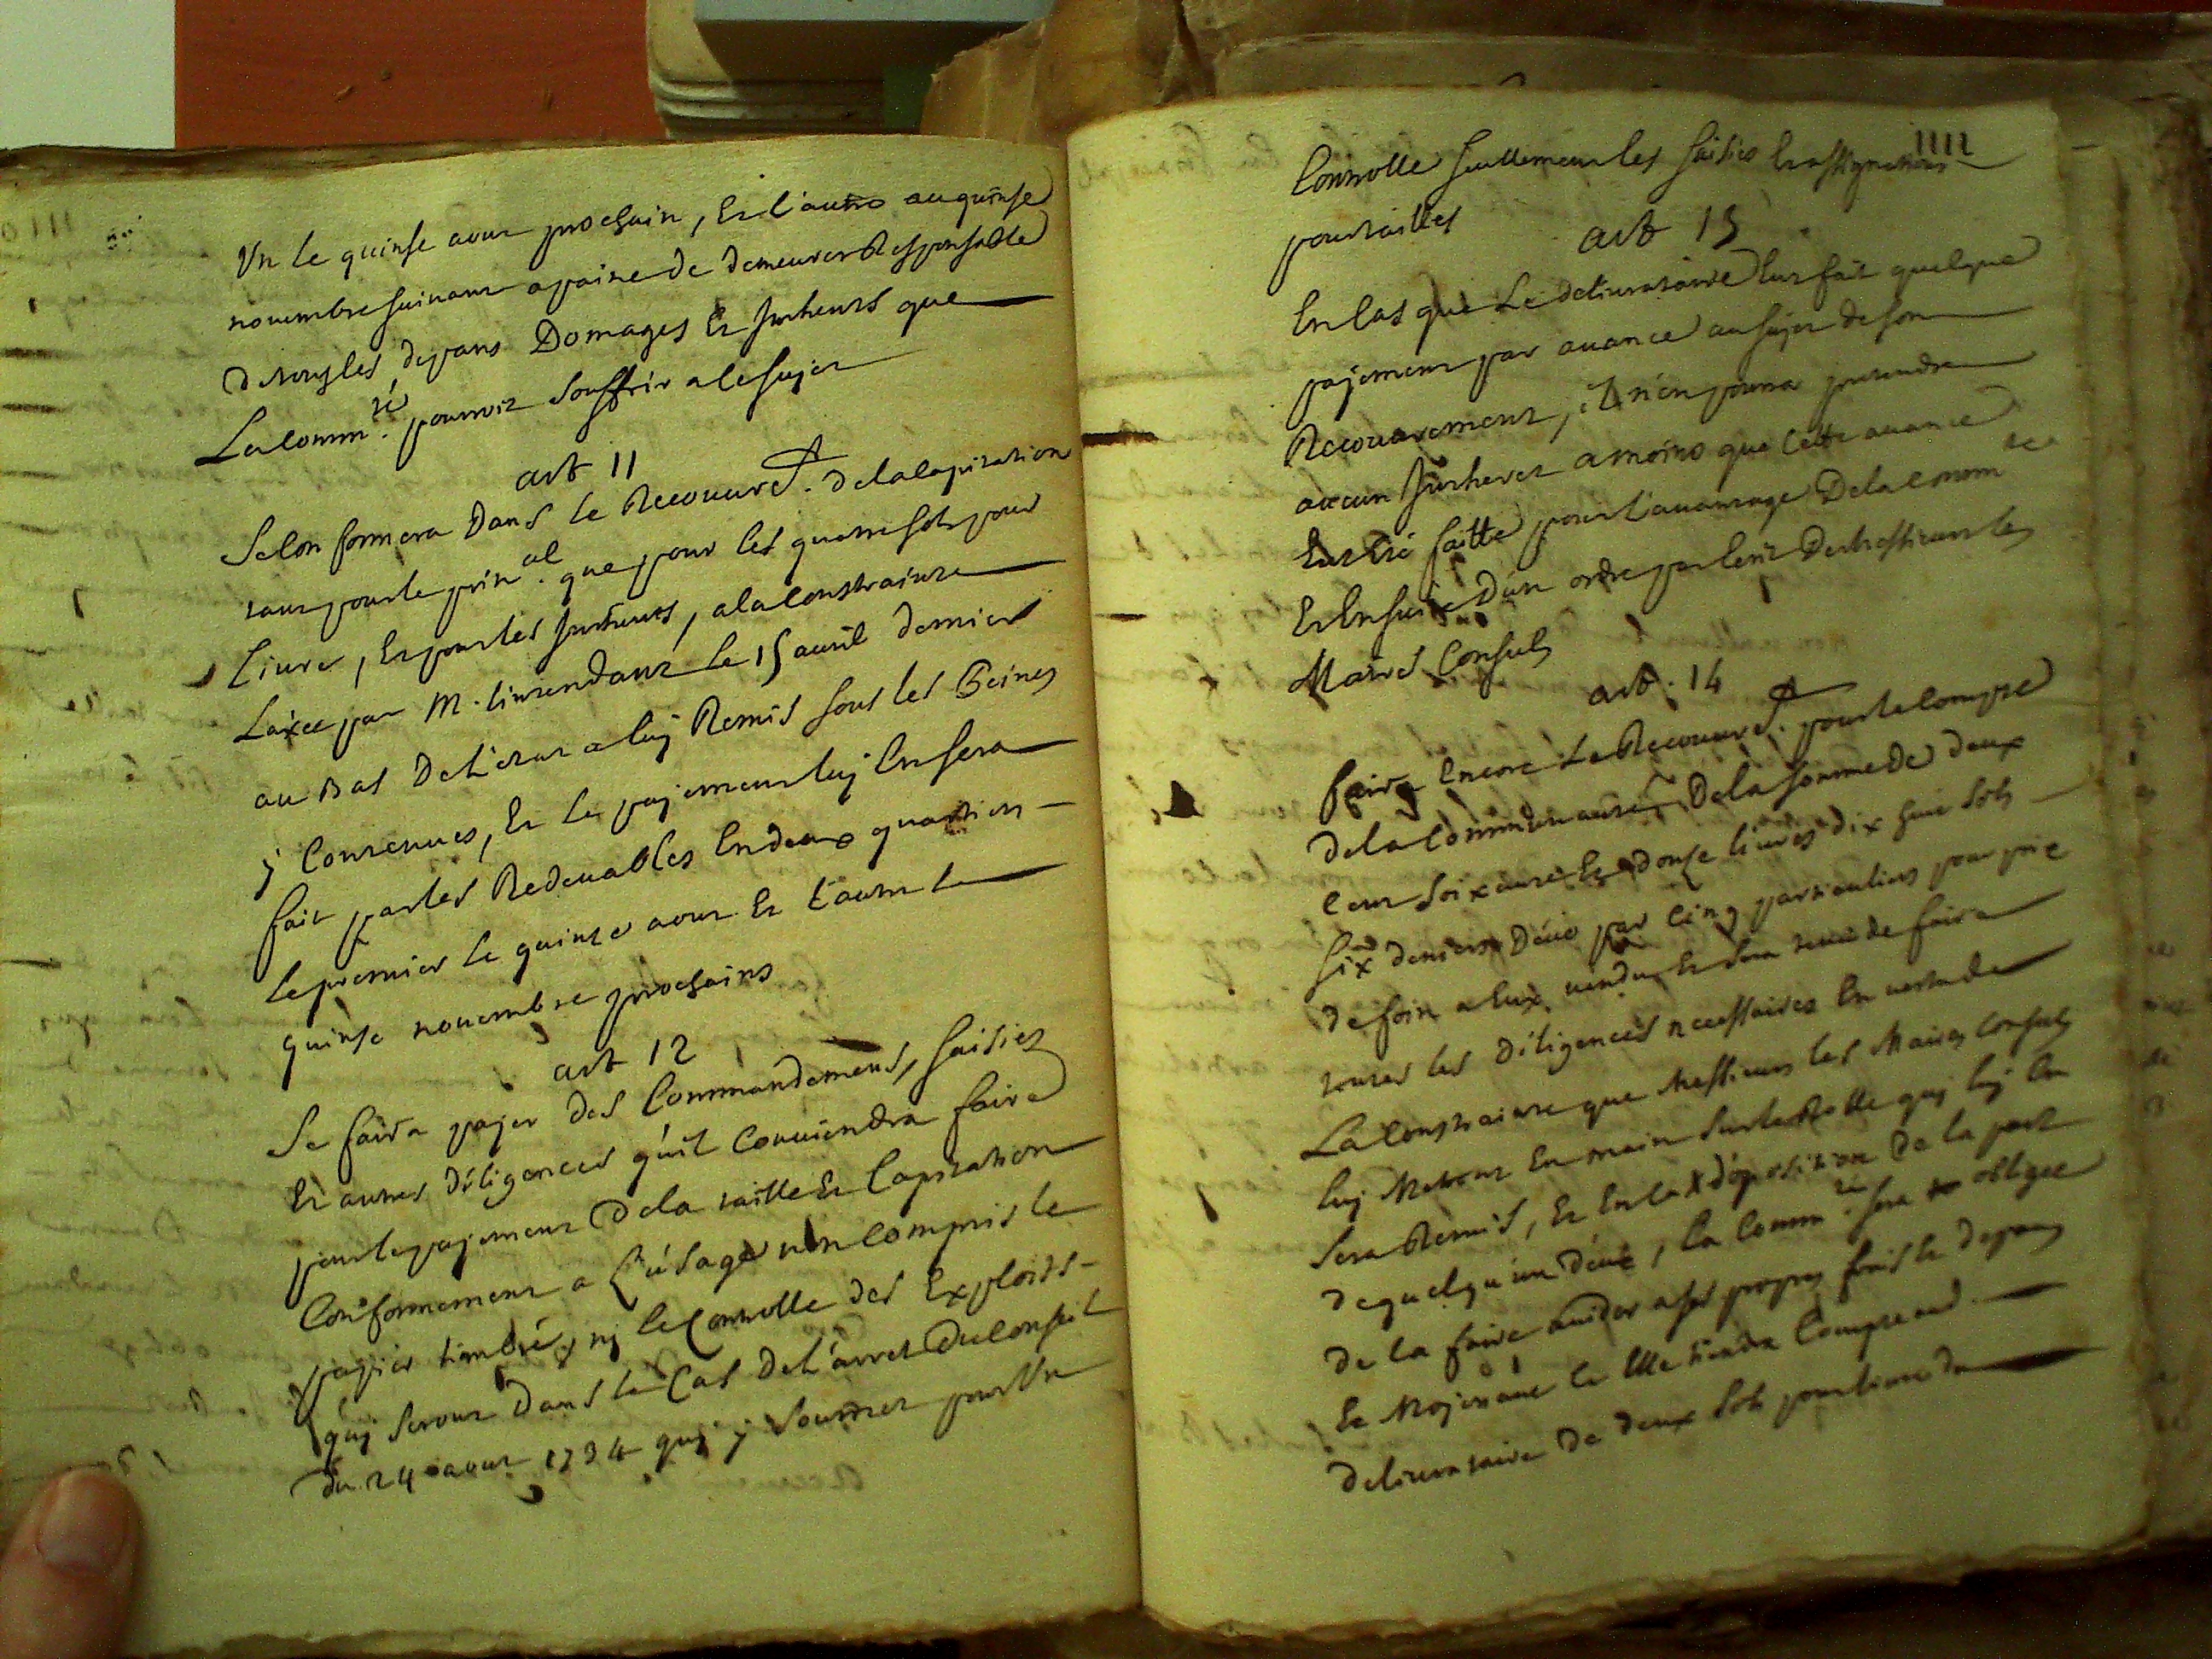 Un le quinse aout prochain, Et l'autre au quinse
novembre suivant a paine de demeurer Responsable
de tous les depans Domages Et Intherets que
La comm.té pourroit Souffrir a le sujet
art 11
Selon formera Dans le Recouvret. de la Capitation
tant pour le prin.al que pour les quatre sols pour
Livre, Et pour les Intherets, a la Constrainte
Laxée par M. lintendant le 15 avril dernier
au Bas De L'etat a luj Remis sous les Peines
j Contenues, Et le pajement luj En sera
fait par les Redevables En deux quartiers
Le premier le quinze aout Et L'autre le
quinse novembre prochains
art 12
Se faira pajer des Commandemens, saisies
Et autres diligences qu'il Conviendra faire
pour le pajement De la taille Et Capitation
Conformement a L'usage non Compris le
papier timbré, nj le Conrolle des Exploits
quj seront Dans le Cas De L'arret Du Conseil
du 24 aout 1734 quj j soumet pour Un
1111
Conrolle seullement les saisies Et assignations
pour tailles
art 13
En Cas que Le delivrataire Eut fait quelque
pajement par avance au sujet de son
Recouvrement, il n'en pourra pretendre
aucun Intheret a moins que Cette avance
Eut Eté faitte pour l'avantage De la Comm.té
Et En suite D'un ordre par Ecrit De Messieurs les
Maires Consuls
art. 14
faira Encore Le Recouvret. pour le Compte
De la Communauté De la somme de deux
Cent soixante Et douse livres dix huit sols
Six deniers Deüe par Cinq particuliers pour prix
de foin a Eux vendu Et sera tenu de faire
toutes les diligences necessaires En vertu de
La Constrainte que Messieurs les Maires Consuls
luj Metront En main sur le Rolle quj luj En
sera Remis, Et En Cas d'oposition de la part
de quelqu'un d'eux, la Comm.té sera obligée
de la faire vuider a ses propres frais & depans
Et Mojenant Ce Elle tiendra Compte aud.
delivrataire de deux sols pour livre du